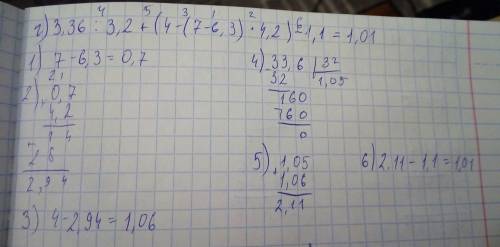 г) 3,36 : 3,2 + (4 - (7 - 6,3) · 4,2) - 1,1 = 1,01
4 5 3 1 2 6
1) 7 - 6,3 = 0,7
2 1
2) × 0,7
4,2
1 4
+ 2 8
2,94
3) 4 - 2,94 = 1,06
4) 33,6 | 32
32 1,05
160
160
0
5) + 1,05
1,06
2,11
6) 2,11 - 1,1 = 1,01